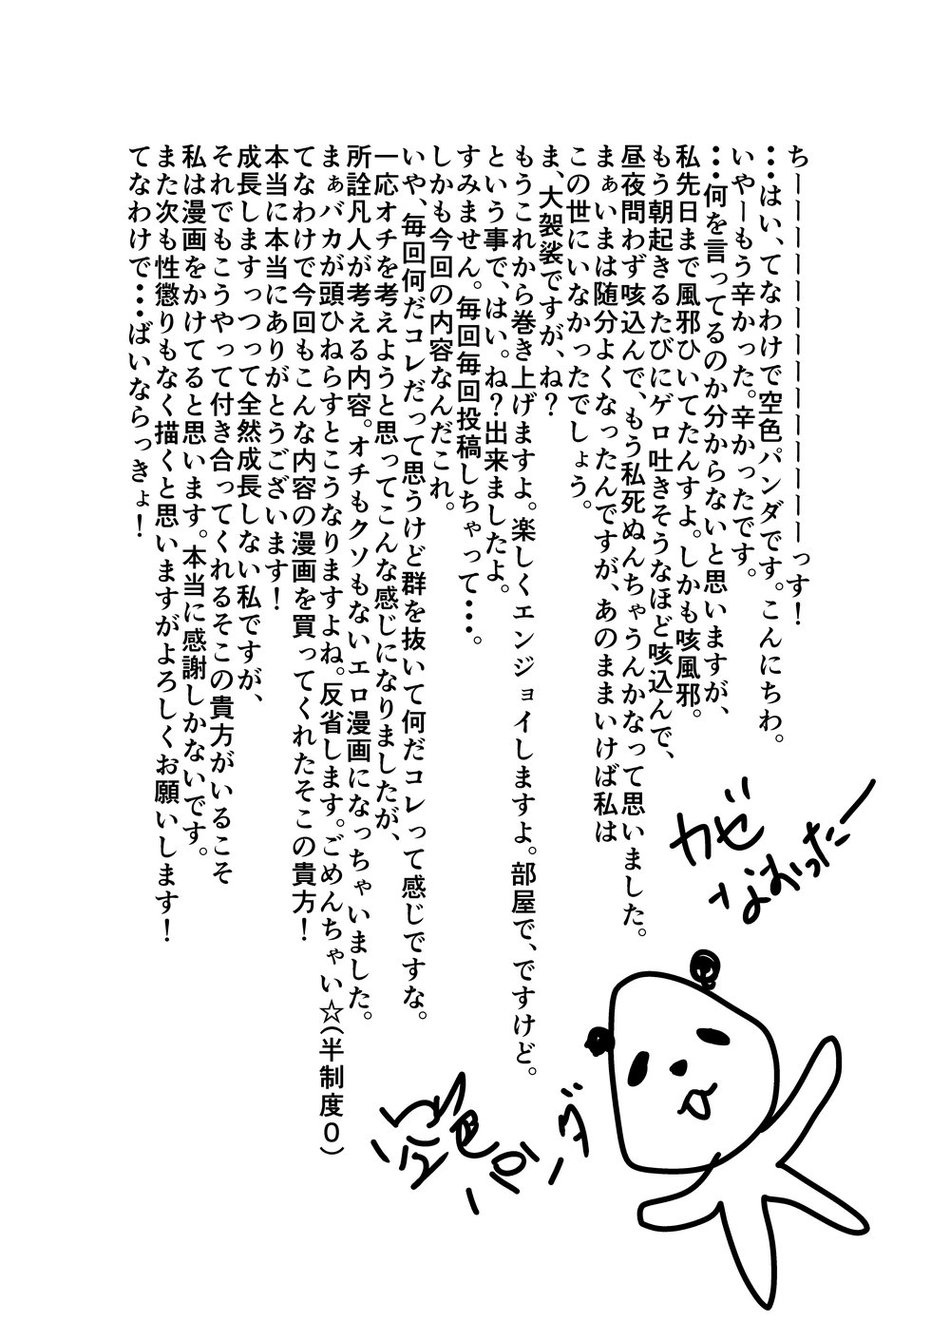 ちーーーーーーーーーーーーーっす!
・・・はい、てなわけで空色パンダです。こんにちわ。
いやーもう辛かった。辛かったです。
・・・何を言ってるのか分からないと思いますが、
私先日まで風邪ひいてたんすよ。しかも咳風邪。
もう朝起きるたびにゲロ吐きそうなほど咳込んで、
昼夜問わず咳込んで、もう私死ぬんちゃうんかなって思いました。
まぁいまは随分よくなったんですが、あのままいけば私は
この世にいなかったでしょう。
ま、大袈裟ですが、ね?
もうこれから巻き上げますよ。楽しくエンジョイしますよ。部屋で、ですけど。
という事で、はい。ね?出来ましたよ。
すみません。毎回毎回投稿しちゃって・・・。
しかも今回の内容なんだこれ。
いや、毎回何だコレだって思うけど群を抜いて何だコレって感じですな。
一応オチを考えようと思ってこんな感じになりましたが、
所詮凡人が考える内容。オチもクソもないエロ漫画になっちゃいました。
まぁバカが頭ひねらすとこうなりますよね。反省します。ごめんちゃい☆(半制度0)
てなわけで今回もこんな内容の漫画を買ってくれたそこの貴方!
本当に本当にありがとうございます!
成長しますっつって全然成長しない私ですが、
それでもこうやって付き合ってくれるそこの貴方がいるこそ
私は漫画をかけてると思います。本当に感謝しかないです。
また次も性懲りもなく描くと思いますがよろしくお願いします!
てなわけで・・・ばいならっきょ!
カゼ
なおったー
空色パンダ